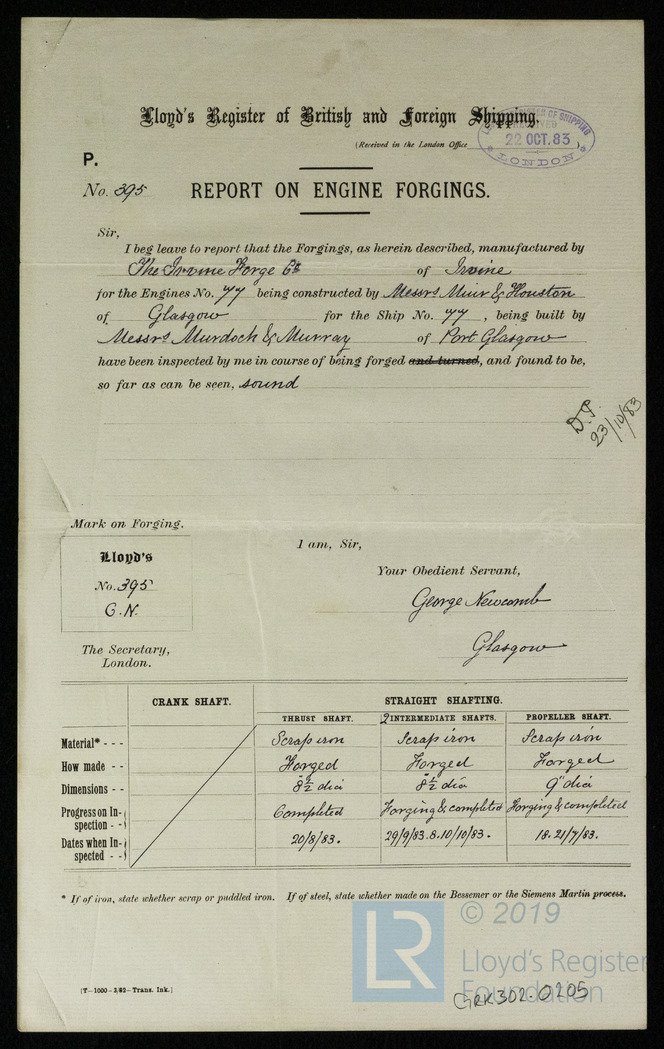 Lloyd's Register of British and Foreign Shipping.
22 OCT. 83
LONDON
(Received in the London Office
P.
No. 395 REPORT ON ENGINE FORGINGS.
Sir,
I beg leave to report that the Forgings, as herein described, manufactured by
The Irvine Forge Co of Irvine
for the Engines No. 77 being constructed by Messrs Muir & Houston
of Glasgow for the Ship No. 77, being built by
Messrs Murdoch & Murray of Port Glasgow
have been inspected by me in course of being forged and turned, and found to be,
so far as can be seen, sound
23/10/83
Mark on Forging.
Lloyd's
No. 395
G.N.
I am, Sir,
Your Obedient Servant,
George Newcomb
Glasgow
The Secretary,
London.
CRANK SHAFT. STRAIGHT SHAFTING.
THRUST SHAFT. 2 INTERMEDIATE SHAFTS. PROPELLER SHAFT.
Material* - - - Scrap iron Scrap iron Scrap iron
How made - - Forged Forged Forged
Dimensions - - 8½ dia 8½ dia 9" dia
Progress on In- Completed Forging & completed Forging & completed
spection - -
Dates when In- 20/8/83. 29/9/83. 8.10/10/83. 18.21/7/83.
spected - -
* If of iron, state whether scrap or puddled iron. If of steel, state whether made on the Bessemer or the Siemens Martin process.
LR
© 2019
Lloyd's Register
Foundation
GRK302-0205
[T-1000-3,82-Trans. Ink.]